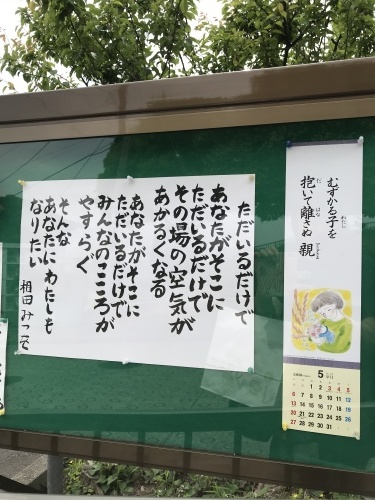 むずかる子を
抱いて離さぬ 親
5
1 2 3 4 5
6 7 8 9 10 11 12
13 14 15 16 17 18 19
20 21 22 23 24 25 26
27 28 29 30 31
ただいるだけで
あなたがそこに
ただいるだけで
その場の空気が
あかるくなる
あなたがそこに
ただいるだけで
みんなのこころが
やすらぐ
そんな
あなたにわたしも
なりたい
相田みつを